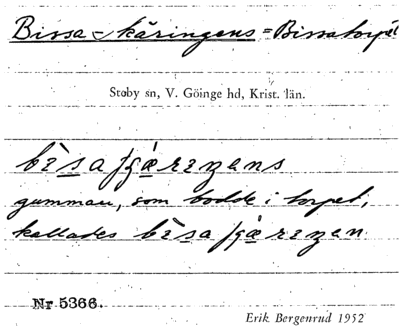 Bissa-käringens = Bissatorpet
Stoby sn, V. Göinge hd, Krist. län.
gumman, som bodde i torpet,
kallades
Nr 5366.
Erik Bergenrud 1952